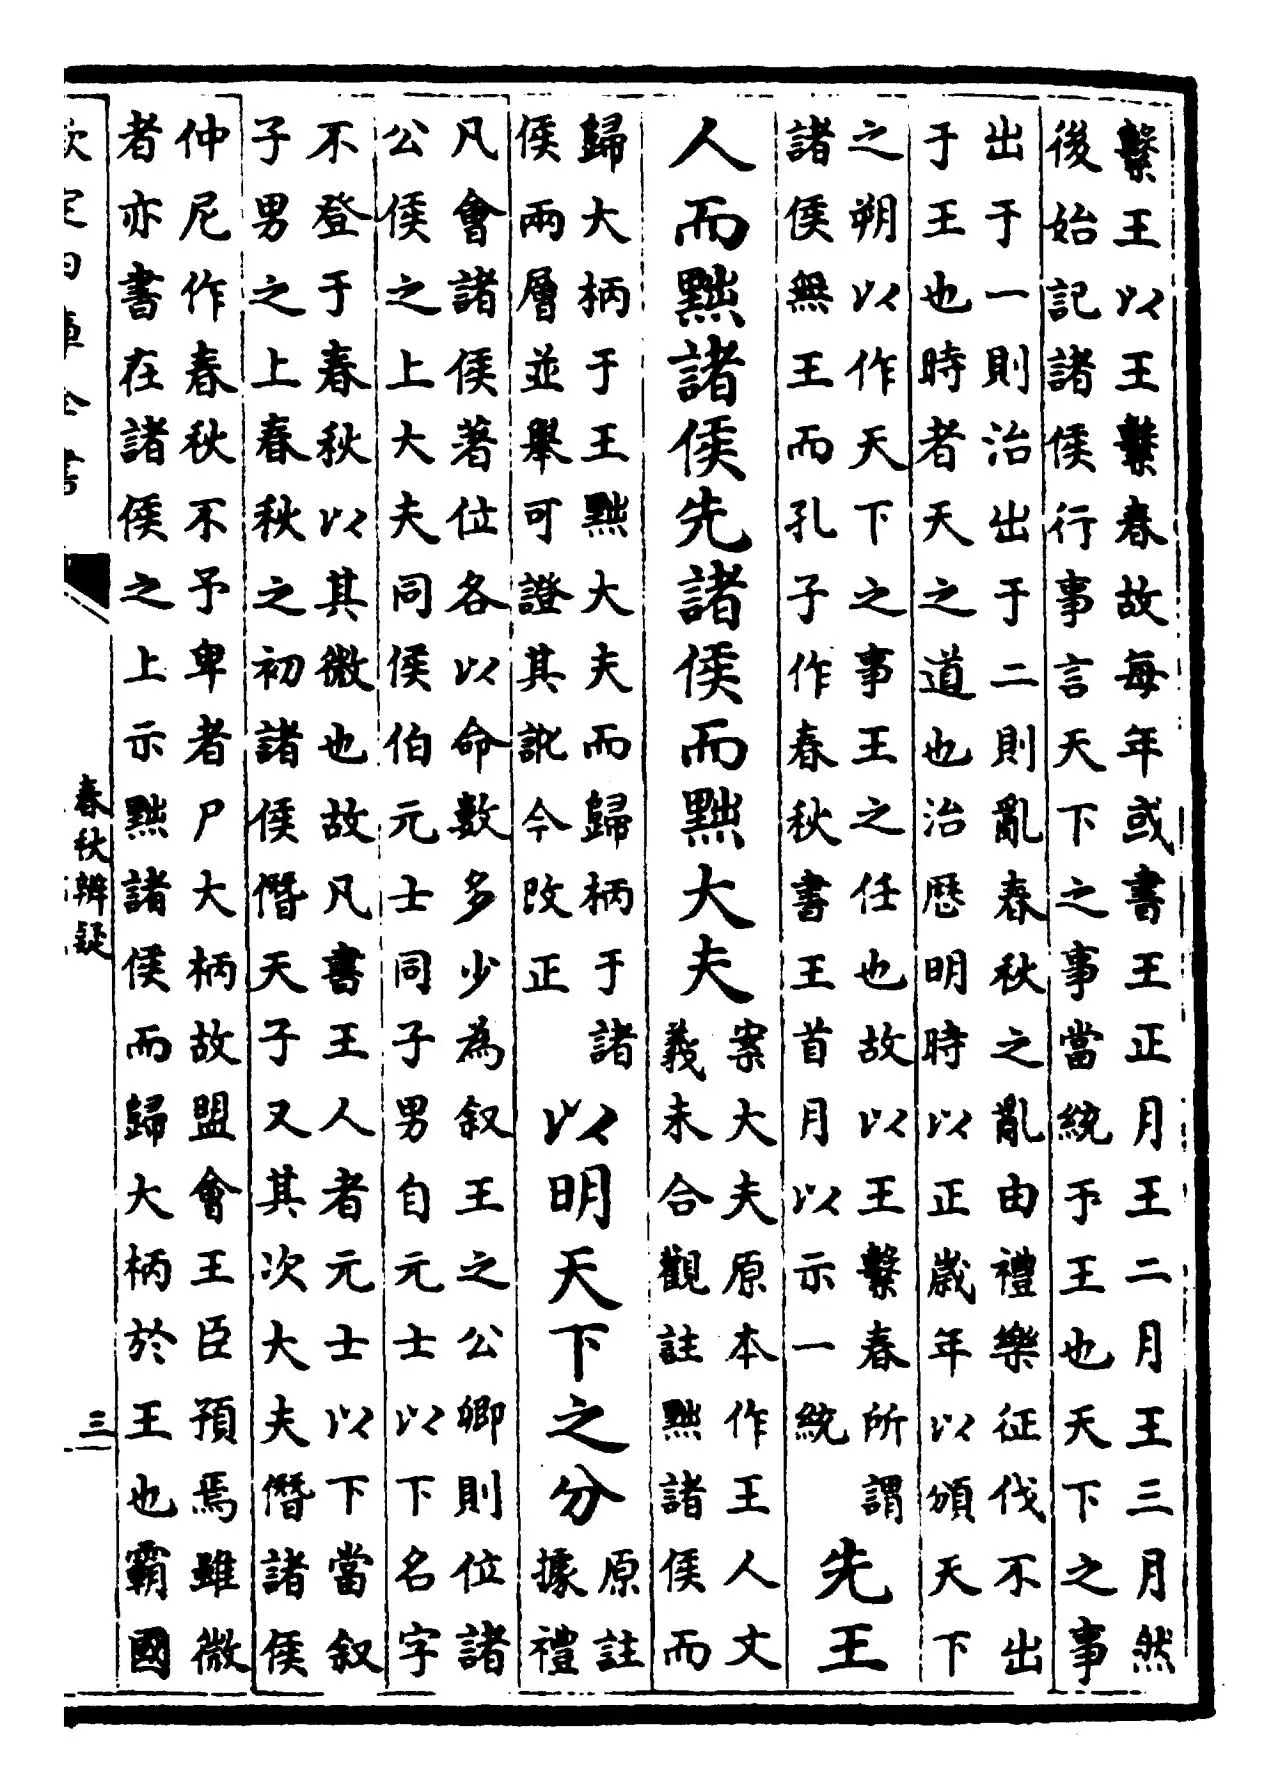 繫王以王繫春故每年或書王正月王二月王三月然
後始記諸侯行事言天下之事當統于王也天下之事
出于一則治出于二則亂春秋之亂由禮樂征伐不出
于王也時者天之道也治歷明時以正歲年以頒天下
之朔以作天下之事王之任也故以王繫春所謂
諸侯無王而孔子作春秋書王首月以示一統
先王
人而黜諸侯先諸侯而黜大夫
案大夫原本作王人文
義未合觀註黜諸侯而
歸大柄于王黜大夫而歸柄于諸
侯兩層並舉可證其訛今改正
以明天下之分
原註
據禮
凡會諸侯著位各以命數多少為叙王之公卿則位諸
公侯之上大夫同侯伯元士同子男自元士以下名字
不登于春秋以其微也故凡書王人者元士以下當叙
子男之上春秋之初諸侯僭天子又其次大夫僭諸侯
仲尼作春秋不予卑者尸大柄故盟會王臣預焉雖微
者亦書在諸侯之上示黜諸侯而歸大柄於王也霸國
欽定四庫全書
春秋辨疑
三